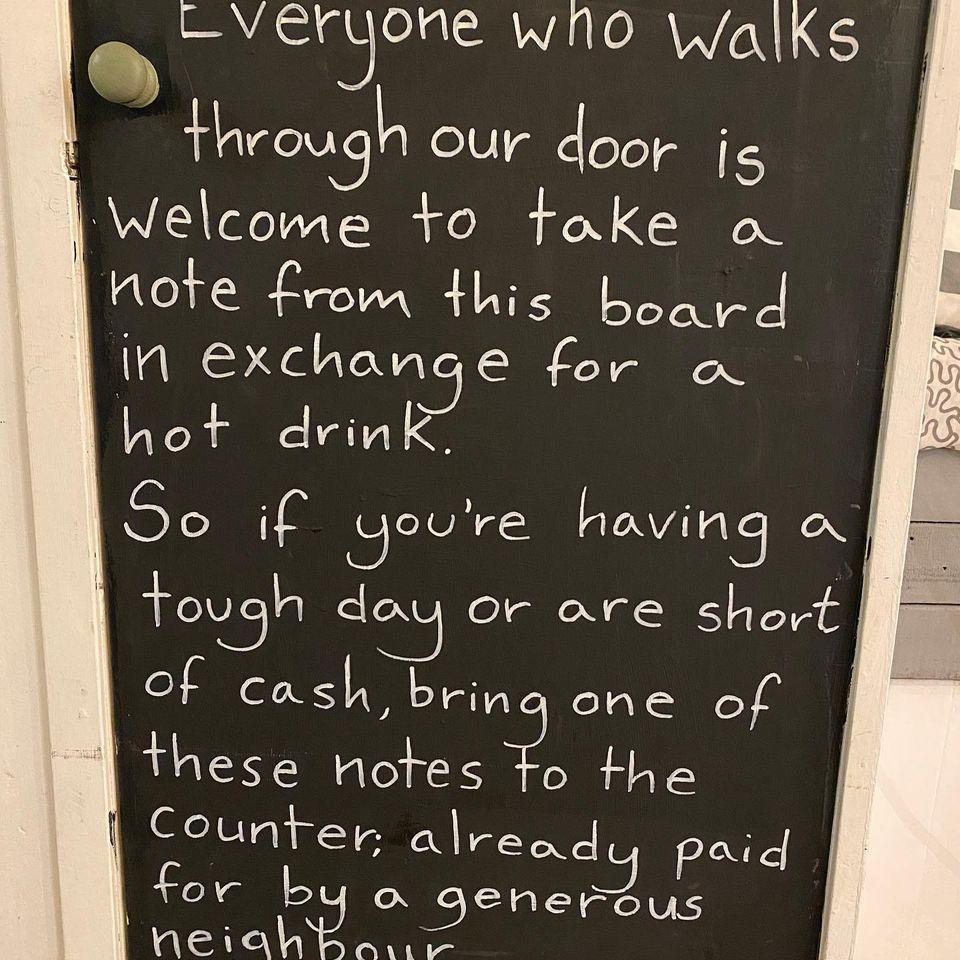 Everyone who walks
through our door is
welcome to take a
note from this board
in exchange for a
hot drink.
So if you're having a
tough day or are short
of cash, bring one of
these notes to the
counter; already paid
for by a generous
neighbour